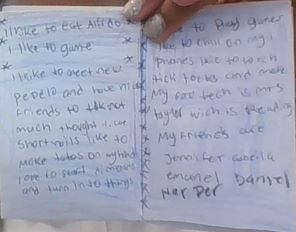 I like to eat Alfrdo
I like to game
I like to meet new
people and have nice
Friends to talk not
much thought I like
short nails like to
make on my hand
love to
and turn into things
to Play games
like to chill on my
phones like to watch
tick tocks and more
My fav tech is mrs
taylor wich is Reading
My Friends are
Jennifer
emanel Daniel
Harper